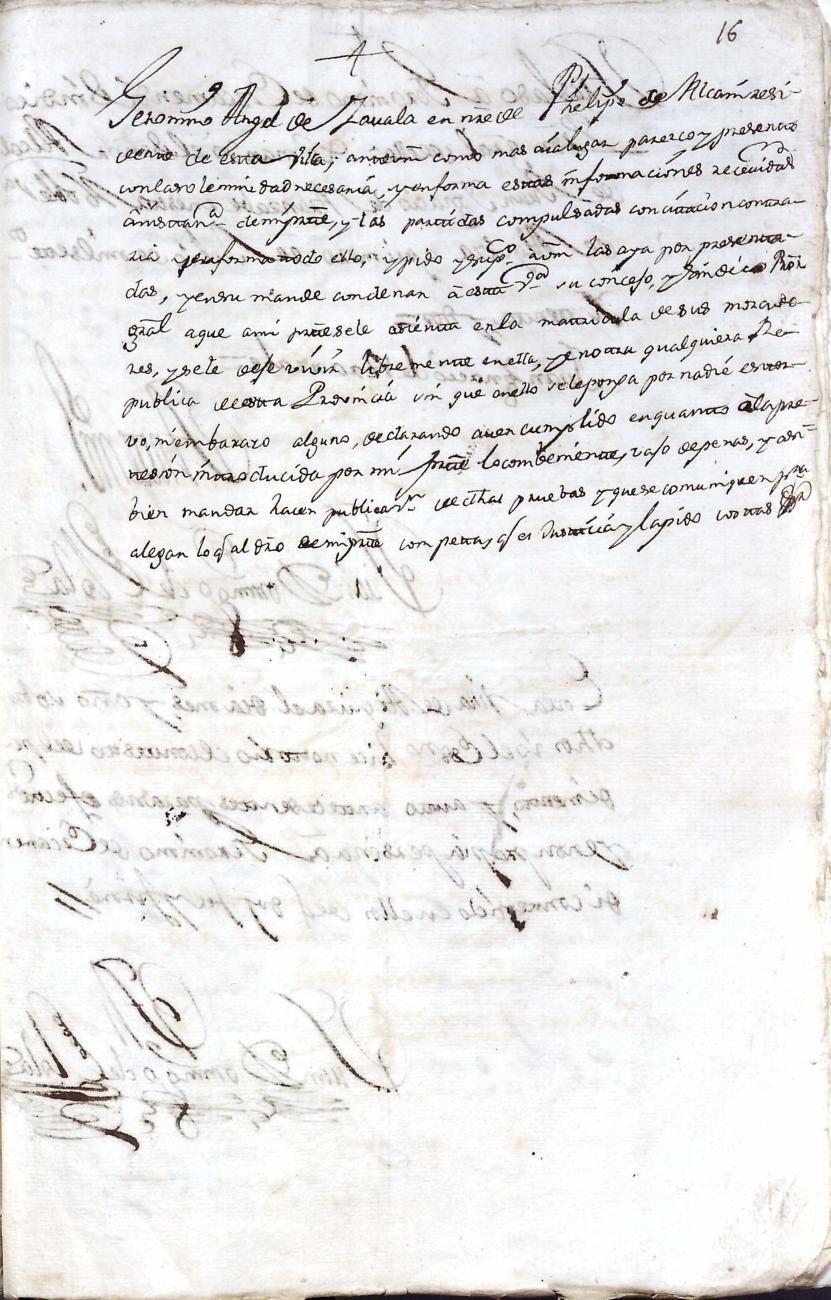 16
Geronimo Angel de Zavala en nre de Phelipe de Alcain resi-
dente de esta Villa, ante vm como mas aia lugar parezco y presento
con la solemnidad necesaria, y en forma estas informaciones recevidas
a instanª de mi parte, y las partidas compulsadas con citacion contra-
ria y en forma todo ello, y pido y supᶜᵒ a vm las aya por presenta-
das, y en su mande condenar a esta Vª su concejo, y Sindico Pror
gral a que a mi parte se le asienta en la matricula de sus morado-
res, y se le deje vivir libremente en ella, y en otra qualquiera Re-
publica de esta Provincia sin que en ello se le ponga por nadie estor-
vo, ni embarazo alguno, declarando aver cumplido en quanto a la pre-
tension introducida por mi parte lo combeniente, vajo de penas, y asi-
bien mandar hacer publicaᵒⁿ de dhas pruebas y que se comuniquen para
alegar lo q al dro de mi parte competa, q es Justicia y la pido costas &ª